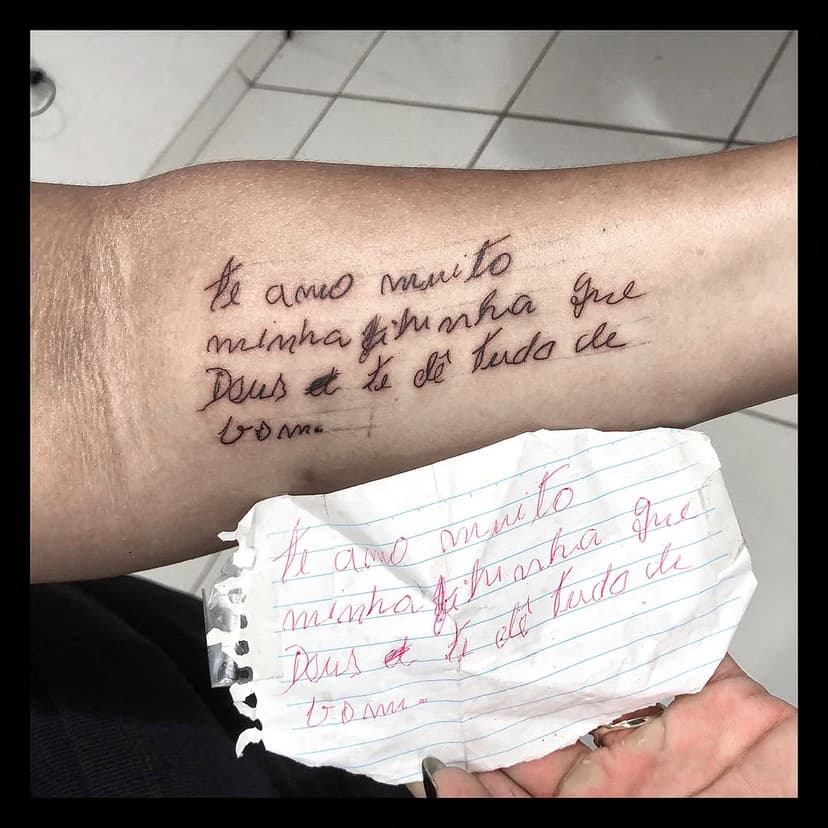 te amo muito
minha filhinha que
Deus te dê tudo de
bom.
te amo muito
minha filhinha que
Deus te dê tudo de
bom.